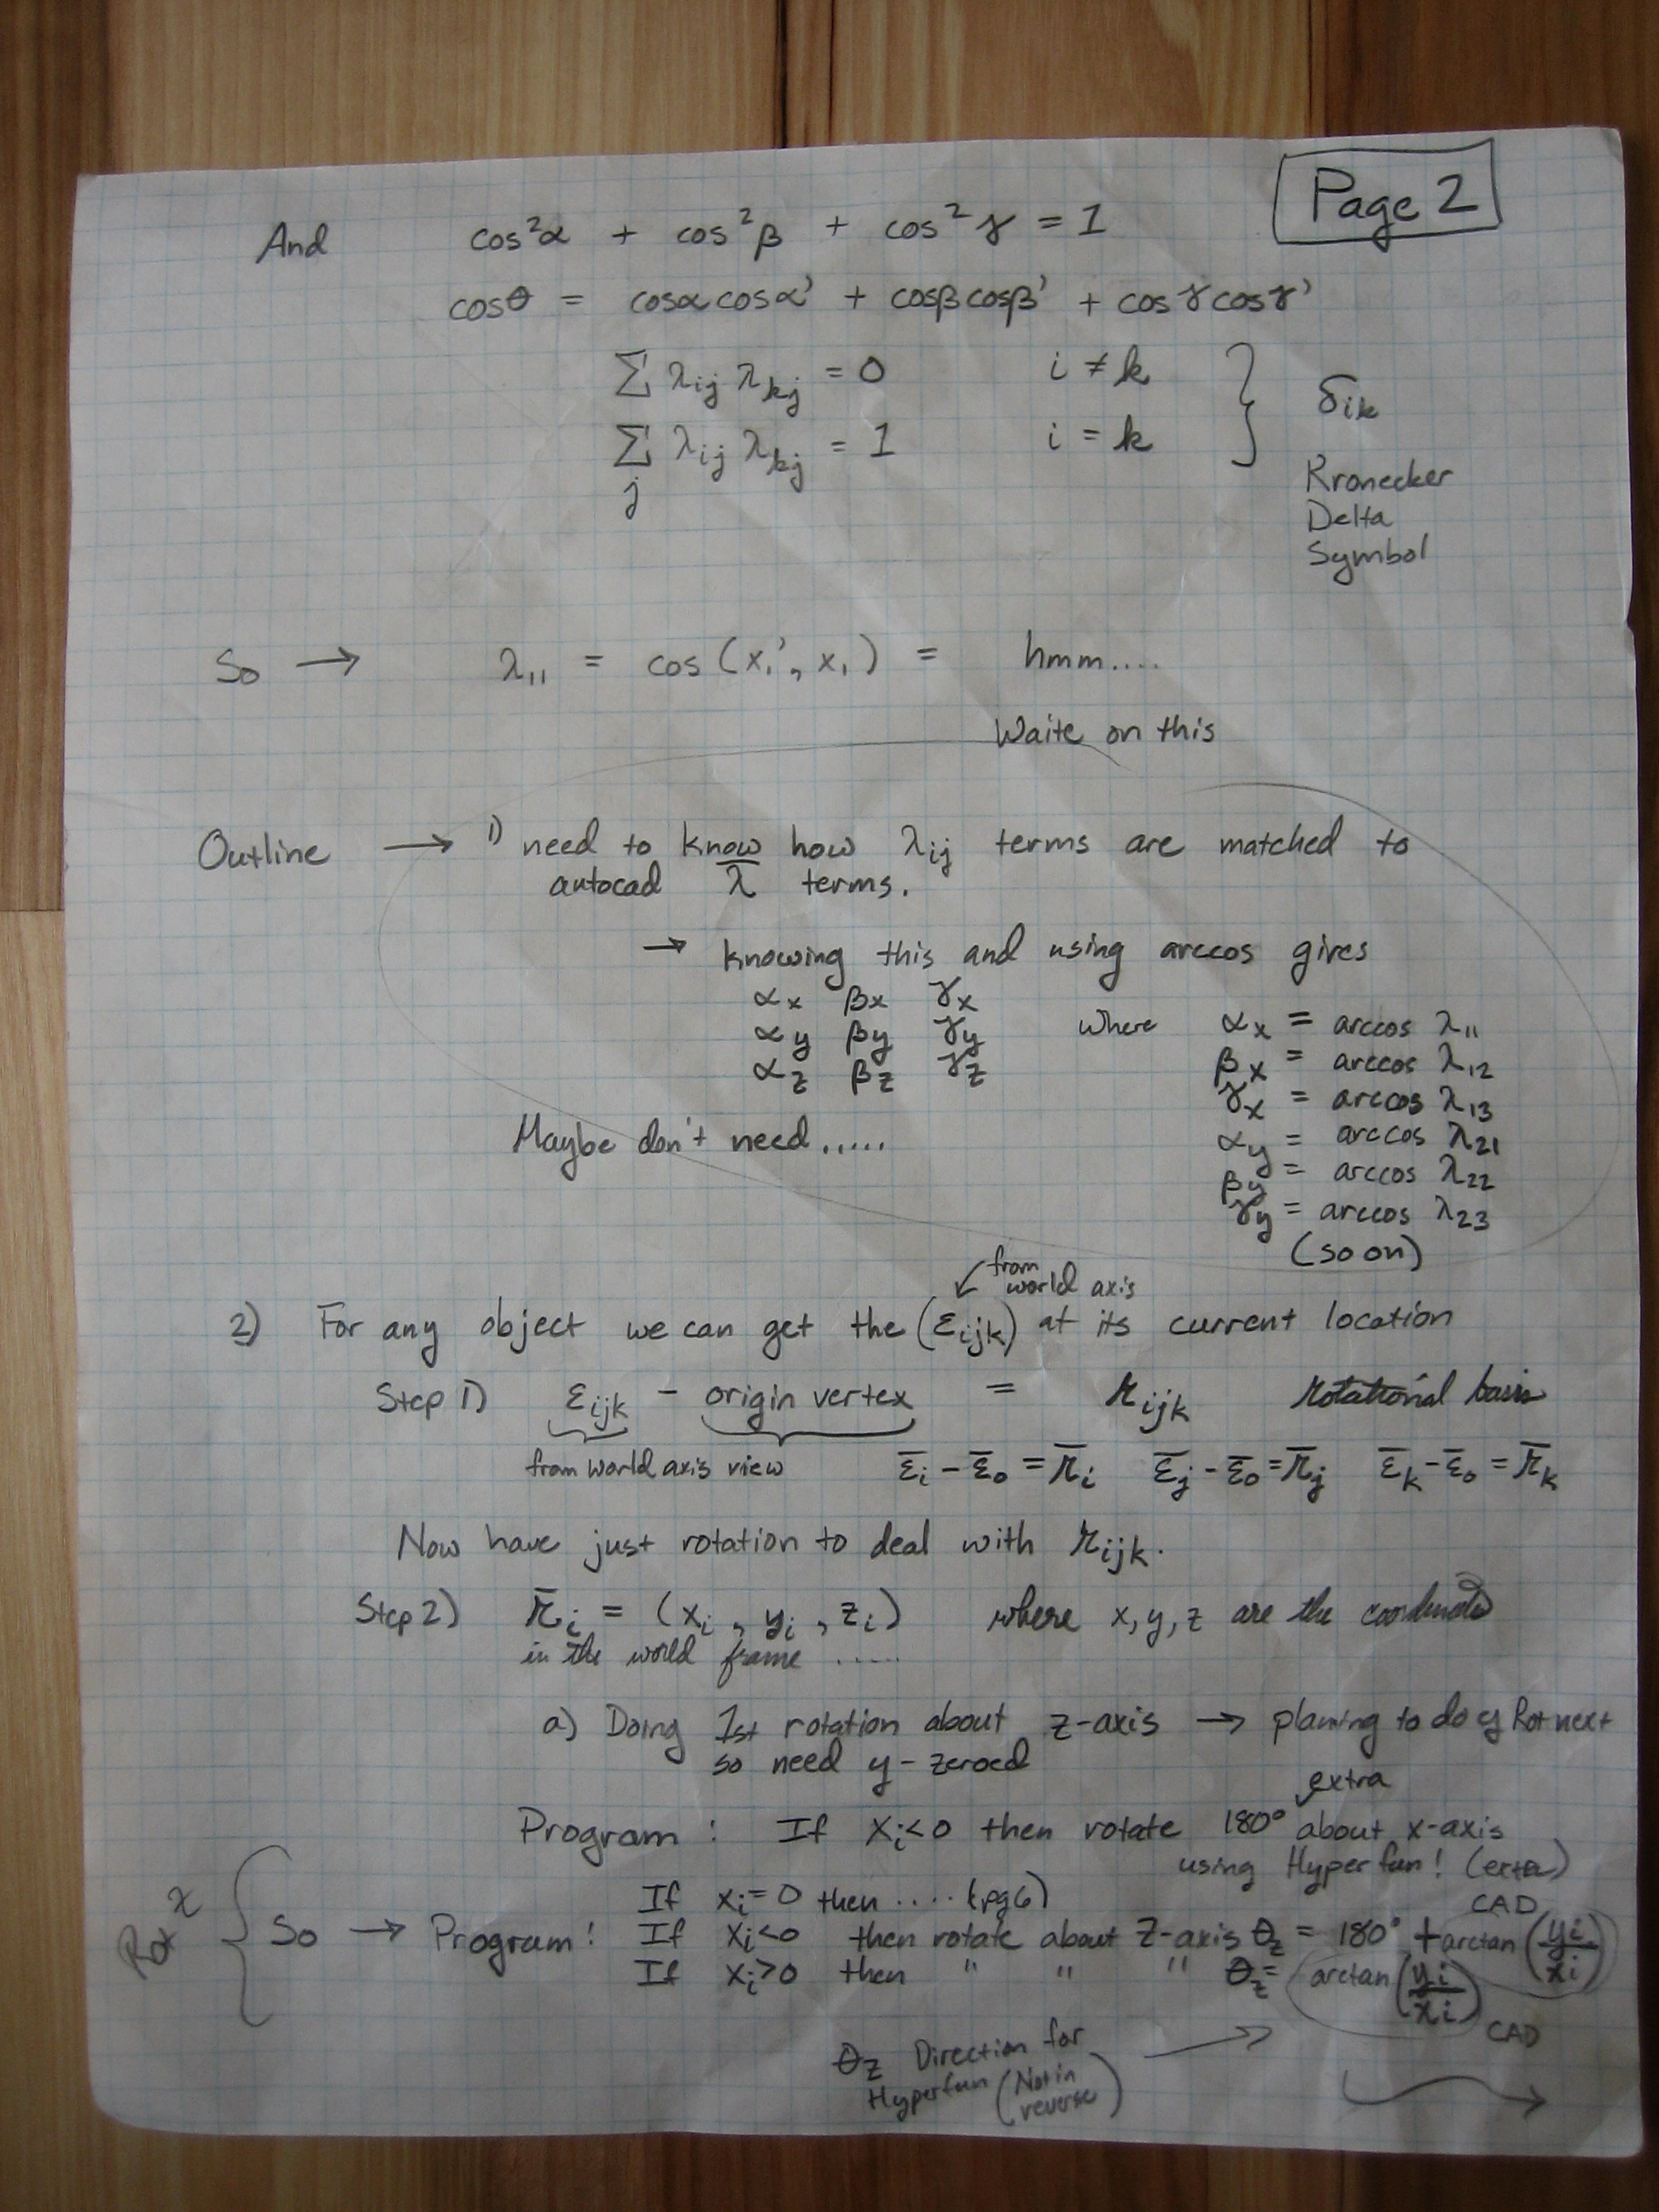 Page 2
And cos²α + cos²β + cos²γ = 1
cosθ = cosα cosα' + cosβ cosβ' + cosγ cosγ'
∑ λij λkj = 0 i ≠ k
δik
∑j λij λkj = 1 i = k
Kronecker
Delta
Symbol
So → λ11 = cos (x1', x1) = hmm....
Waite on this
Outline → 1) need to know how λij terms are matched to
autocad λ̄ terms.
→ knowing this and using arccos gives
αx βx γx
αy βy γy where αx = arccos λ11
αz βz γz βx = arccos λ12
γx = arccos λ13
Maybe don't need..... αy = arccos λ21
βy = arccos λ22
γy = arccos λ23
(so on)
from
world axis
2) For any object we can get the (εijk) at its current location
Step 1) εijk - origin vertex = rijk rotational basis
from world axis view ε̄i - ε̄o = r̄i ε̄j - ε̄o = r̄j ε̄k - ε̄o = r̄k
Now have just rotation to deal with rijk.
Step 2) r̄i = (xi, yi, zi) where x, y, z are the coordinates
in the world frame .....
a) Doing 1st rotation about z-axis → planning to do y Rot next
so need y-zeroed
extra
Program: If xi<0 then rotate 180° about x-axis
using Hyperfun! (extra)
If xi=0 then .... (pg6)
CAD
Rot z So → Program! If xi<0 then rotate about z-axis θz = 180° + arctan (yi/xi)
If xi>0 then " " " θz = arctan (yi/xi)
CAD
θz Direction for
Hyperfun (Not in
reverse)